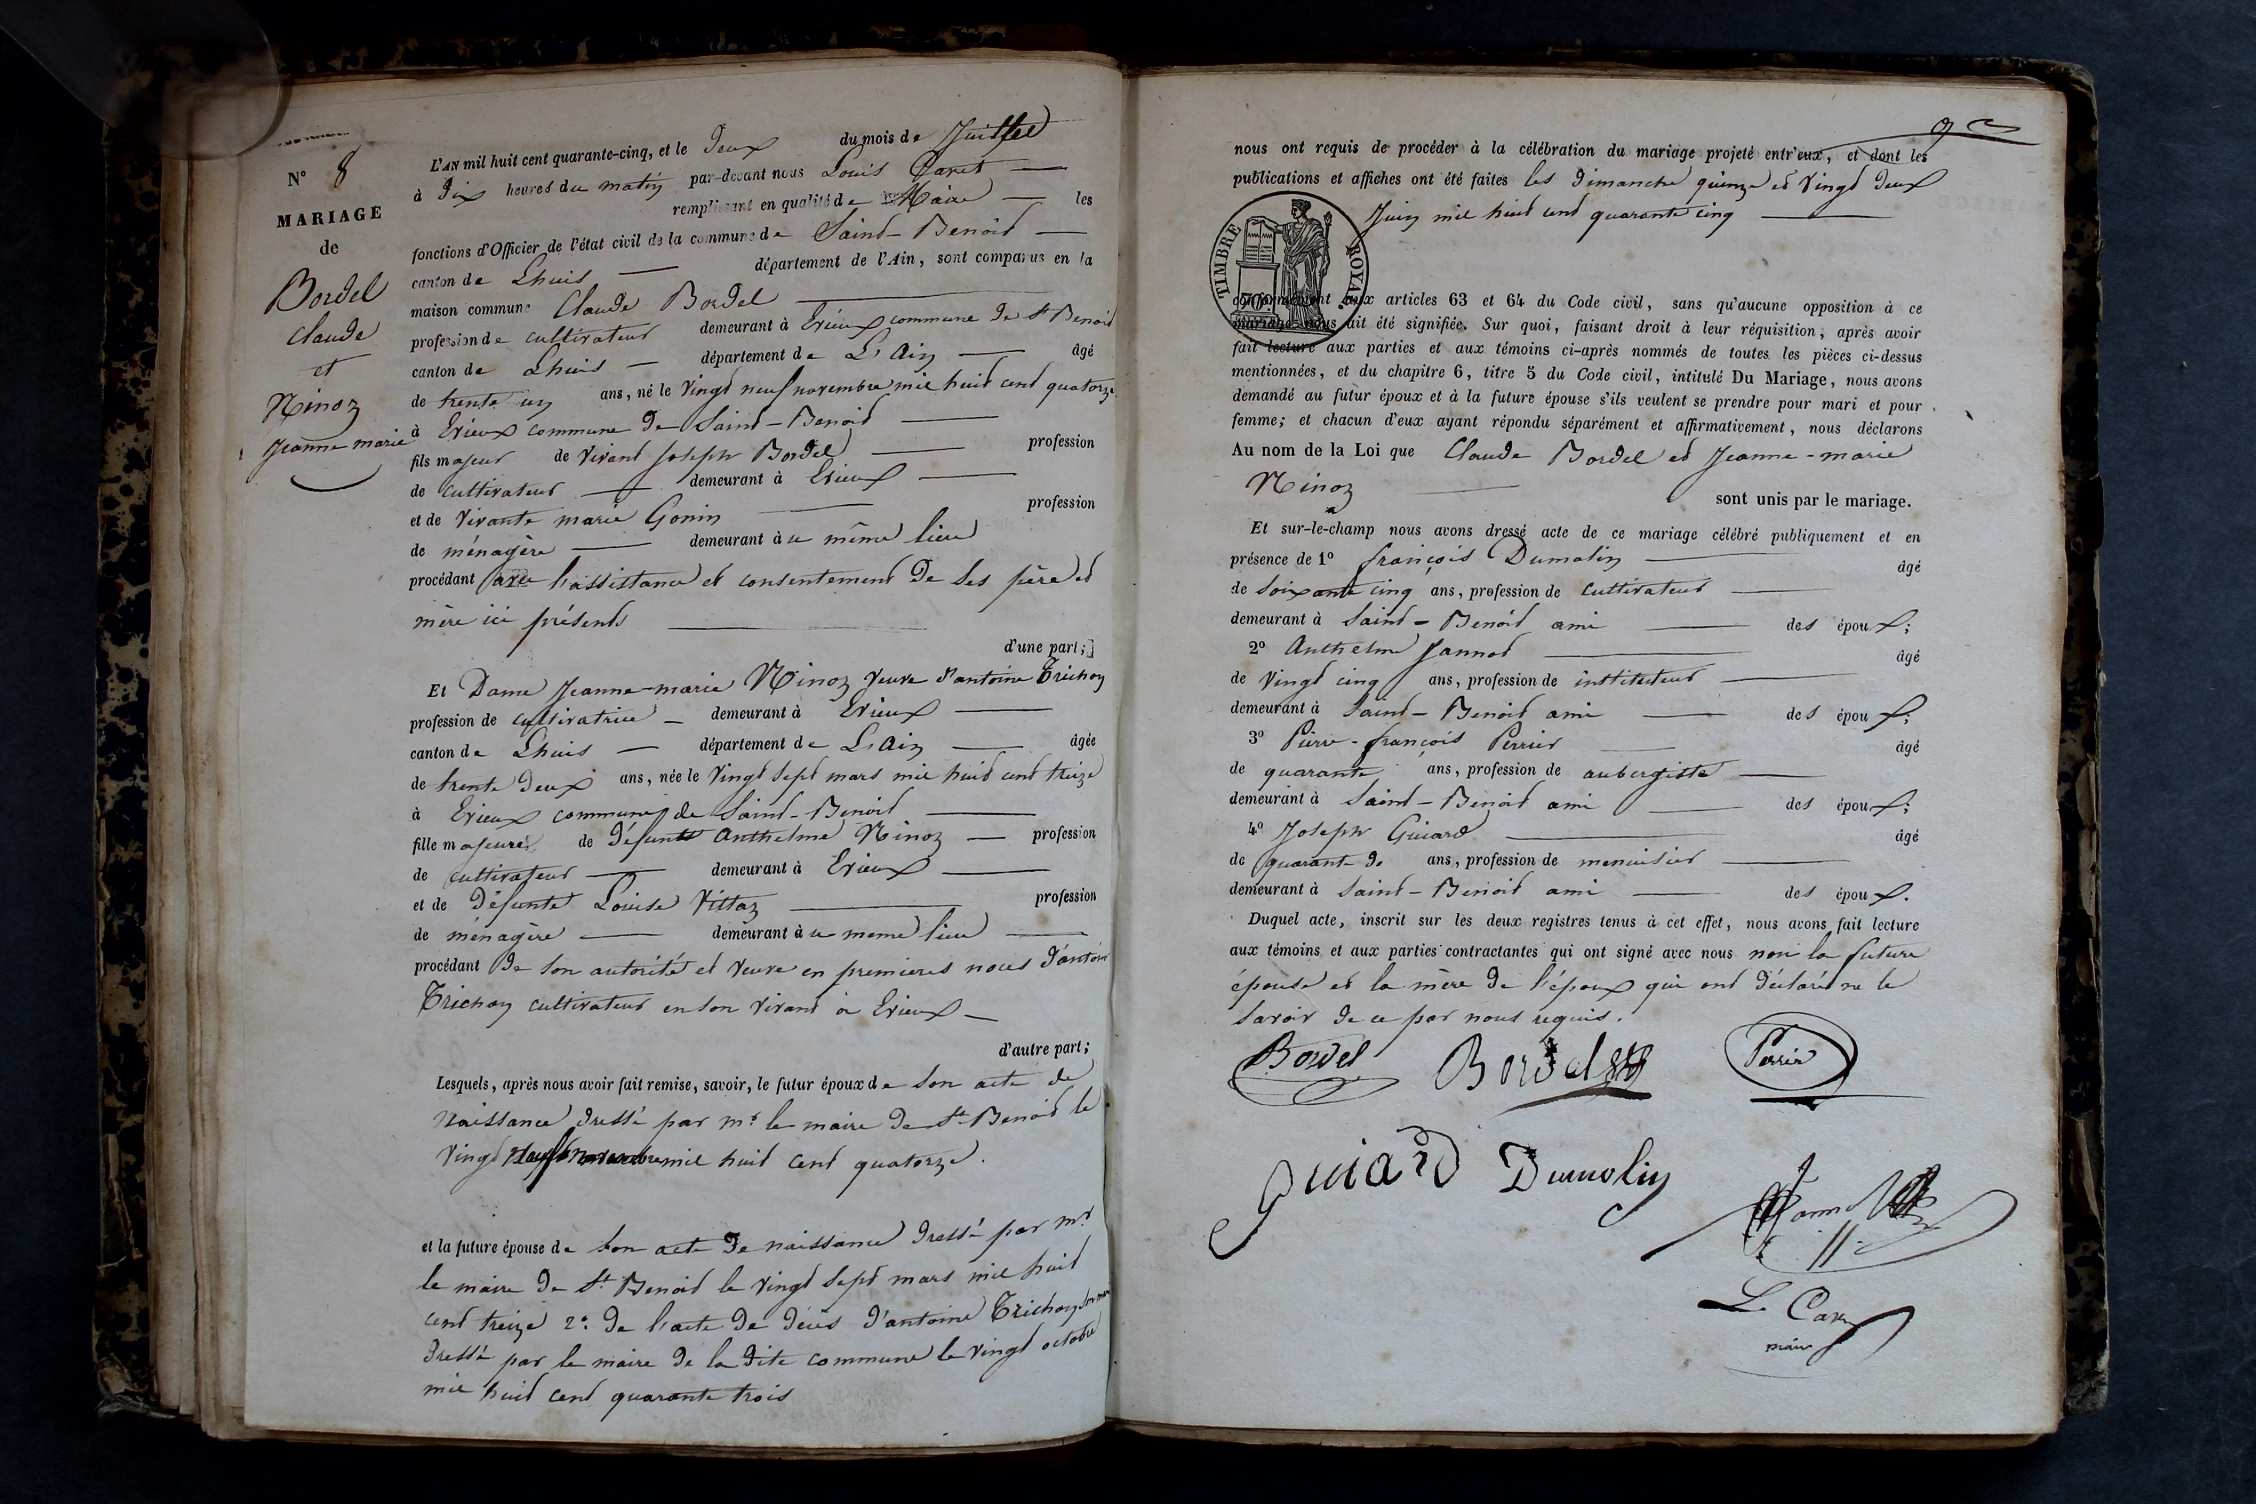 N° 8
MARIAGE
de
Bordel
Claude
et
Ninoz
Jeanne-marie
L'AN mil huit cent quarante-cinq, et le deux du mois de Juillet
à dix heures du matin par-devant nous Louis Caret
remplissant en qualité de Maire les
fonctions d'Officier de l'état civil de la commune de Saint-Benoit
canton de Lhuis département de l'Ain, sont comparus en la
maison commune Claude Bordel
profession de cultivateur demeurant à Evieux commune de St Benoit
canton de Lhuis département de L'Ain âgé
de trente un ans, né le vingt neuf novembre mil huit cent quatorze
à Evieux commune de Saint-Benoit
fils majeur de vivant Joseph Bordel profession
de cultivateur demeurant à Evieux
et de vivante marie Gonin profession
de ménagère demeurant au même lieu
procédant avec l'assistance et consentement de ses père et
mère ici présents
d'une part;
Et Dame Jeanne-marie Ninoz veuve d'antoine Trichon
profession de cultivatrice demeurant à Evieux
canton de Lhuis département de L'Ain âgée
de trente deux ans, née le vingt sept mars mil huit cent treize
à Evieux commune de Saint-Benoit
fille majeure de défunt Anthelme Ninoz profession
de cultivateur demeurant à Evieux
et de défunte Louise Vittoz profession
de ménagère demeurant au meme lieu
procédant de son autorité et veuve en premieres noces d'antoine
Trichon cultivateur en son vivant à Evieux
d'autre part;
Lesquels, après nous avoir fait remise, savoir, le futur époux de son acte de
naissance dressé par mr le maire de St Benoit le
vingt neuf novembre mil huit cent quatorze.
et la future épouse de son acte de naissance dressé par mr
le maire de St Benoit le vingt sept mars mil huit
cent treize 2° de l'acte de décès d'antoine Trichon son mari
dressé par le maire de la dite commune le vingt octobre
mil huit cent quarante trois
9
nous ont requis de procéder à la célébration du mariage projeté entr'eux, et dont les
publications et affiches ont été faites les dimanche quinze et vingt deux
Juin mil huit cent quarante cinq
TIMBRE ROYAL
conformément aux articles 63 et 64 du Code civil, sans qu'aucune opposition à ce
mariage nous ait été signifiée. Sur quoi, faisant droit à leur réquisition, après avoir
fait lecture aux parties et aux témoins ci-après nommés de toutes les pièces ci-dessus
mentionnées, et du chapitre 6, titre 5 du Code civil, intitulé Du Mariage, nous avons
demandé au futur époux et à la future épouse s'ils veulent se prendre pour mari et pour
femme; et chacun d'eux ayant répondu séparément et affirmativement, nous déclarons
Au nom de la Loi que Claude Bordel et Jeanne-marie
Ninoz sont unis par le mariage.
Et sur-le-champ nous avons dressé acte de ce mariage célébré publiquement et en
présence de 1° françois Dumolin âgé
de soixante cinq ans, profession de cultivateur
demeurant à Saint-Benoit ami des époux;
2° Anthelme Jannot âgé
de vingt cinq ans, profession de instituteur
demeurant à Saint-Benoit ami des époux;
3° Pierre-françois Perrier âgé
de quarante ans, profession de aubergiste
demeurant à Saint-Benoit ami des époux;
4° Joseph Guiard âgé
de quarante de ans, profession de menuisier
demeurant à Saint-Benoit ami des époux.
Duquel acte, inscrit sur les deux registres tenus à cet effet, nous avons fait lecture
aux témoins et aux parties contractantes qui ont signé avec nous non la future
épouse et la mère de l'époux qui ont déclaré ne le
savoir de ce par nous requis.
Bordel Bordel Perrier
Guiard Dumolin
Jannot
L. Caret
maire